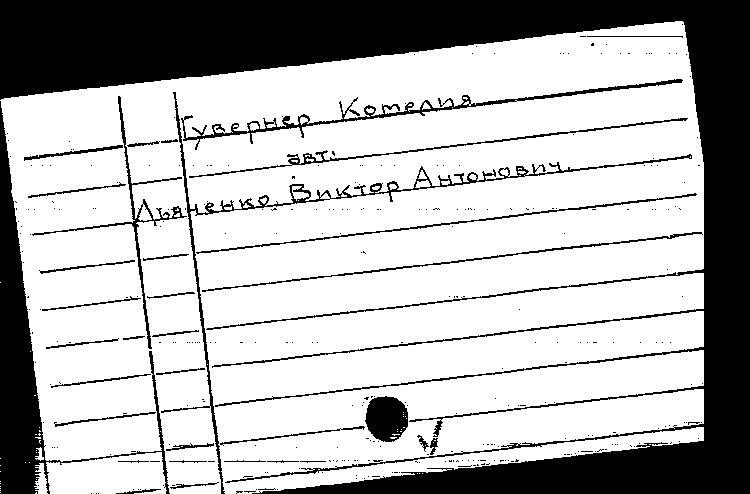 Гувернер Комедия
авт:
Дьяченко, Виктор Антонович.